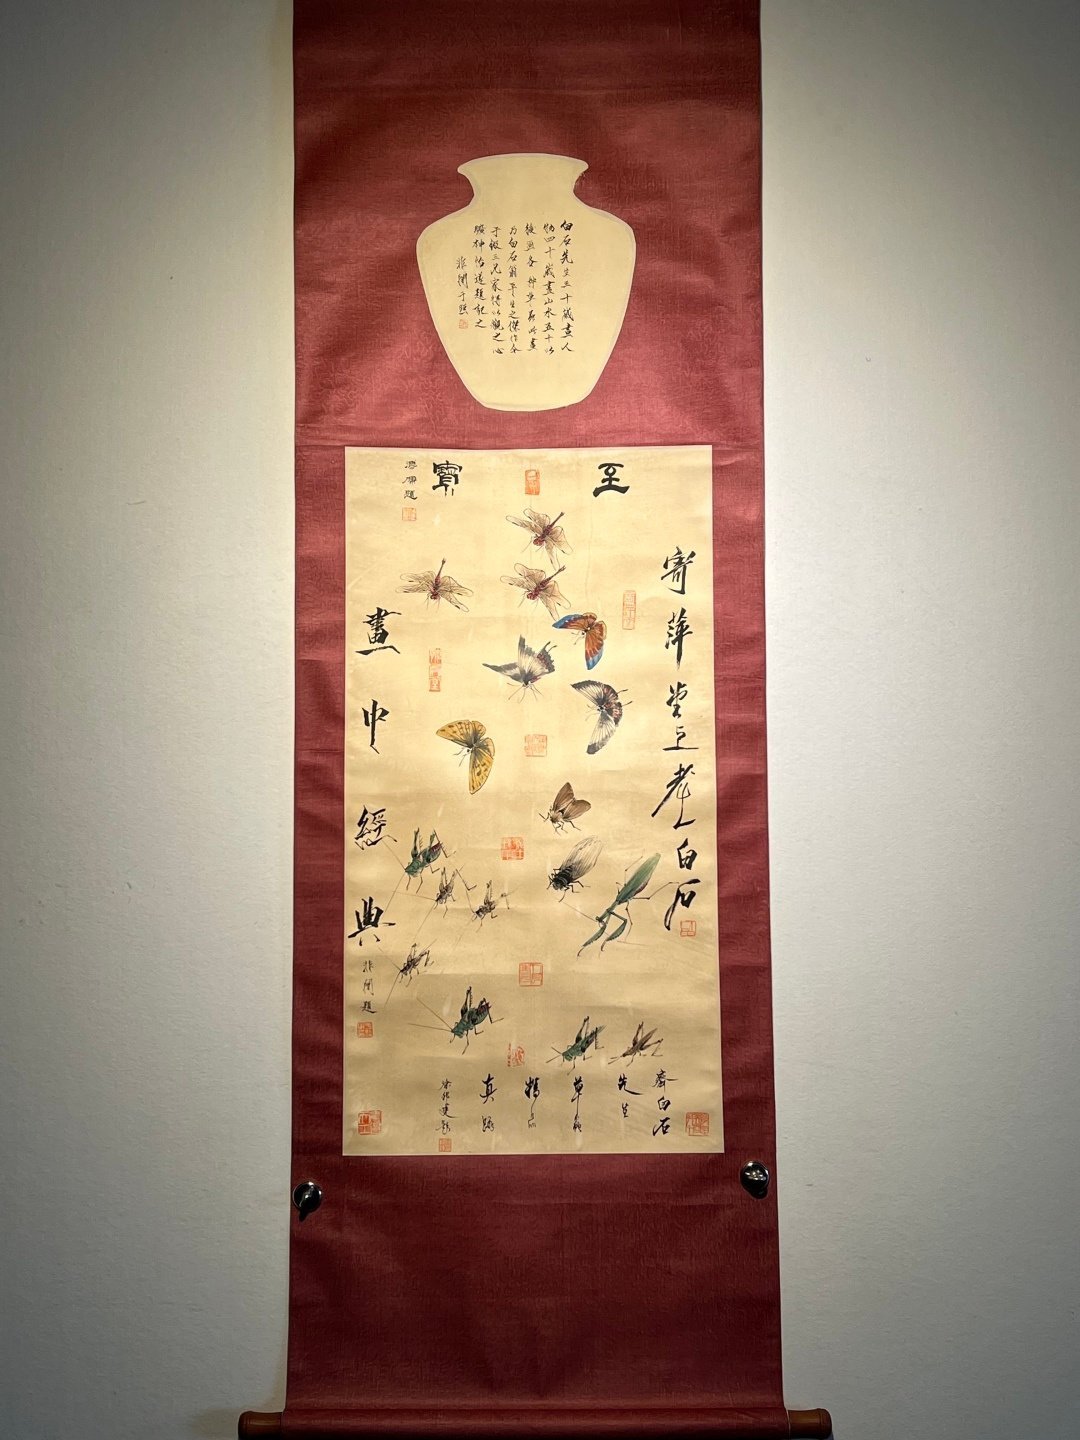 白石先生三十歲畫人
物四十歲畫山水五十以
後
為白石翁平生之傑作今
于振三兄家得以觀之心
曠神怡遂題記之
非闇于照
至寶
題
寄萍堂上老人白石
畫中經典
非闇題
齊白石
先生
草蟲
精品
真跡
徐悲鴻題